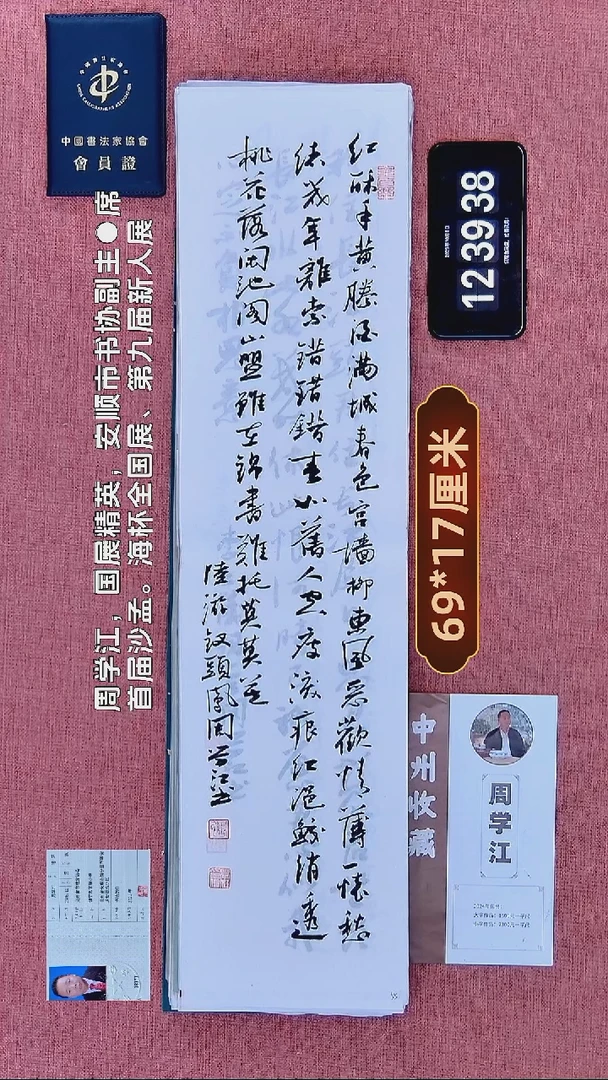 中國書法家協會
會員證
周学江，国展精英，安顺市书协副主●席
首届沙孟。海杯全国展、第九届新人展
红酥手黄縢酒满城春色宫墙柳東風恶歡情薄一懷愁
绪幾年離索錯錯錯春如舊人空瘦淚痕红浥鲛绡透
桃花落闲池阁山盟雖在錦書難托莫莫莫
陸游釵頭鳳周学江书
12 39 38
69*17厘米
中州收藏
周学江